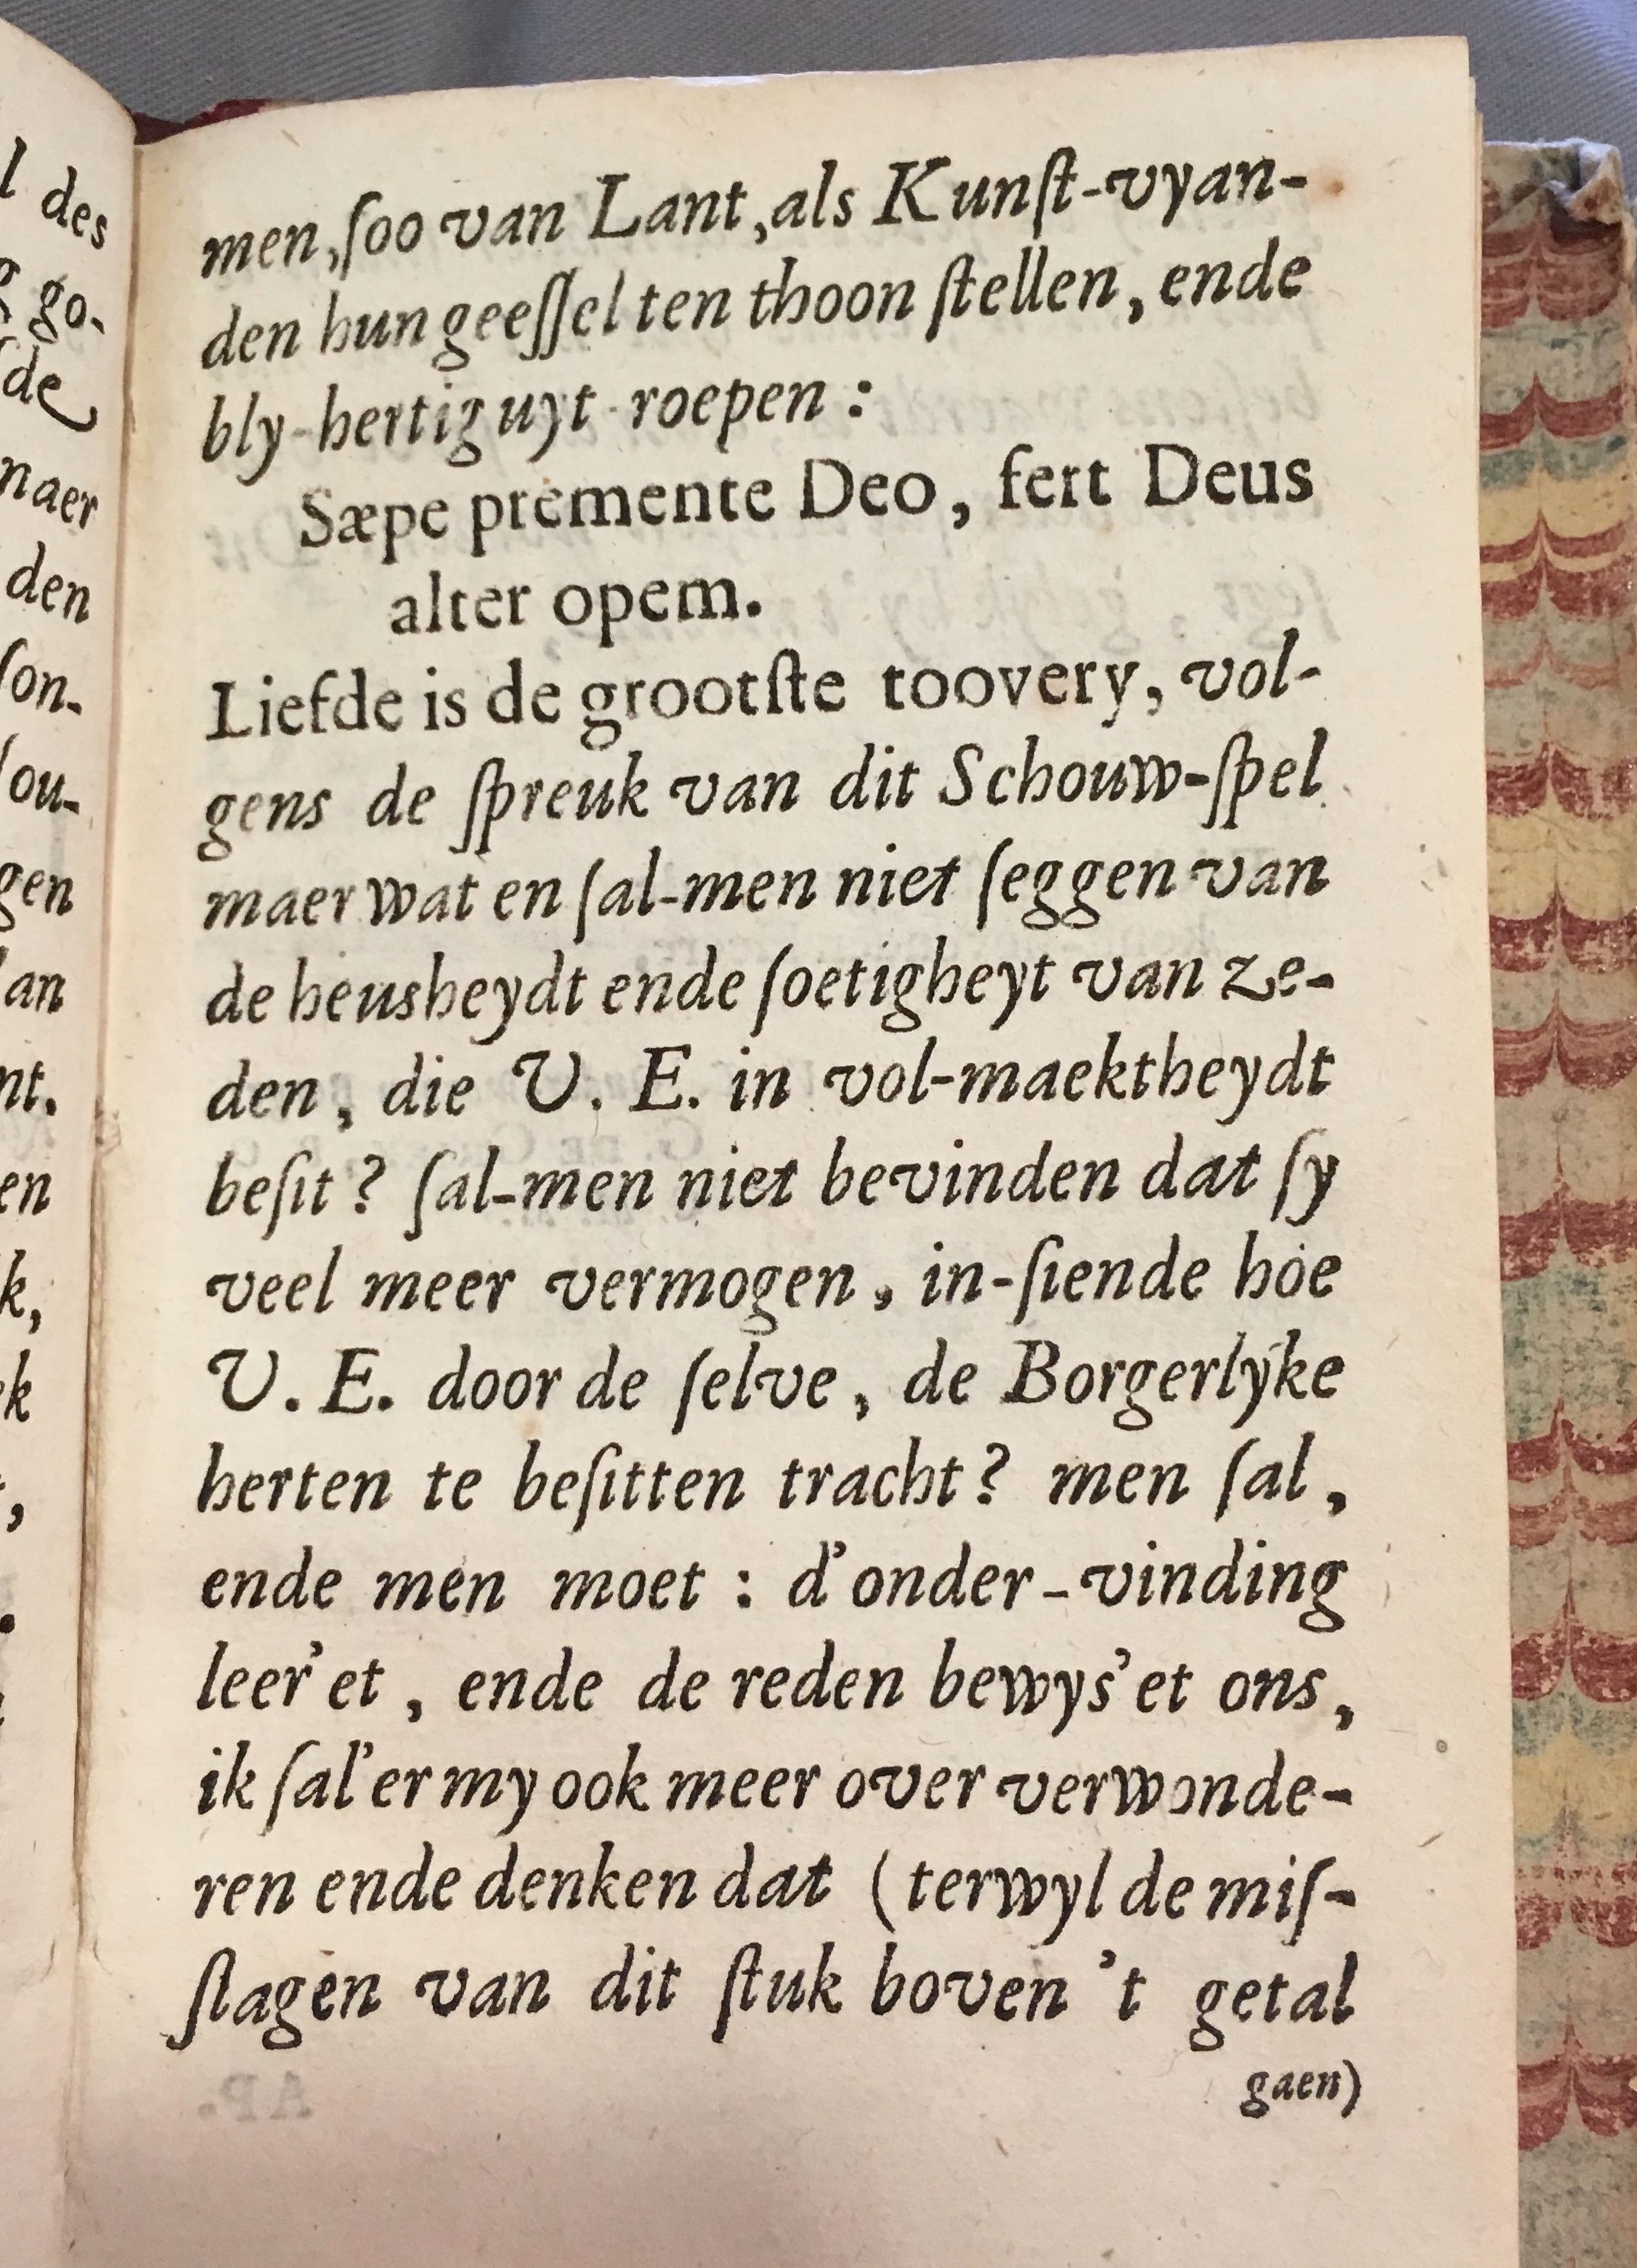 l des
g go-
de
naer
den
ſon-
ſou-
gen
ſan
nt.
en
k,
ek
men, ſoo van Lant, als Kunſt-vyan-
den hun geeſſel ten thoon ſtellen, ende
bly-hertig uyt-roepen :
Sæpe premente Deo, fert Deus
alter opem.
Liefde is de grootſte toovery, vol-
gens de ſpreuk van dit Schouw-ſpel
maer wat en ſal-men niet ſeggen van
de heusheydt ende ſoetigheyt van ze-
den, die U. E. in vol-maektheydt
beſit? ſal-men niet bevinden dat ſy
veel meer vermogen, in-ſiende hoe
U. E. door de ſelve, de Borgerlyke
herten te beſitten tracht? men ſal,
ende men moet : d'onder-vinding
leer'et, ende de reden bewys'et ons,
ik ſal'er my ook meer over verwonde-
ren ende denken dat (terwyl de miſ-
ſlagen van dit ſtuk boven 't getal
gaen)